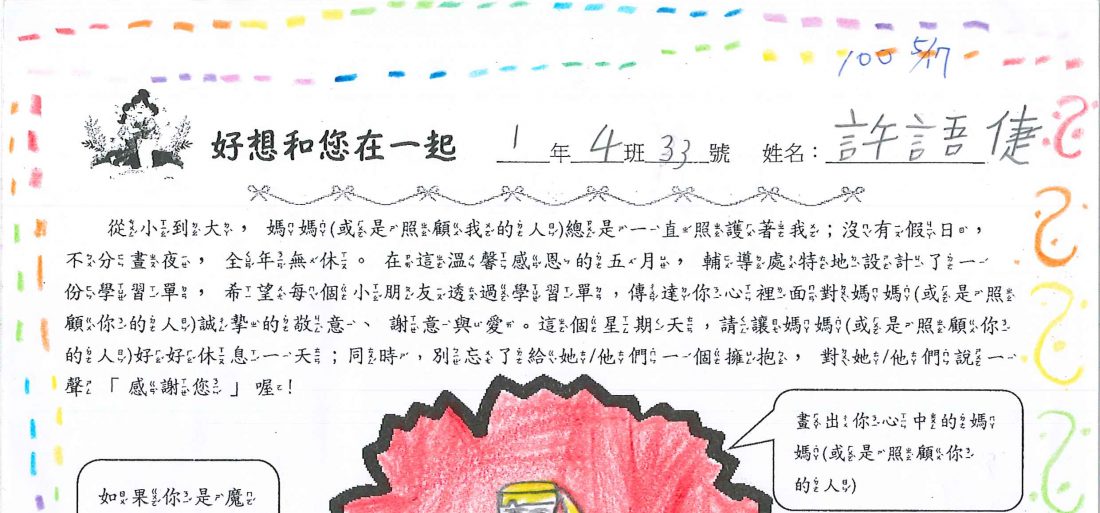 100 5/17
好想和您在一起 1年4班33號 姓名：許語倢
從小到大，媽媽(或是照顧我的人)總是一直照護著我；沒有假日，
不分晝夜，全年無休。在這溫馨感恩的五月，輔導處特地設計了一
份學習單，希望每個小朋友透過學習單，傳達你心裡面對媽媽(或是照
顧你的人)誠摯的敬意、謝意與愛。這個星期天，請讓媽媽(或是照顧你
的人)好好休息一天；同時，別忘了給她/他們一個擁抱，對她/他們說一
聲「感謝您」喔！
畫出你心中的媽
媽(或是照顧你
的人)
如果你是魔